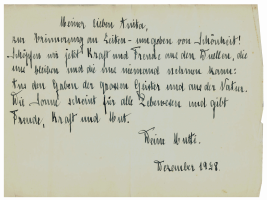 Meiner lieben Anita,
zur Erinnerung an Zeiten - umgeben von Schönheit!
Schöpfen wir jetzt Kraft und Freude aus den Quellen, die
uns bleiben und die uns niemand nehmen kann:
Aus den Gaben der grossen Geister und aus der Natur.
Die Sonne scheint für alle Lebewesen und gibt
Freude, Kraft und Mut.
Deine Mutti.
Dezember 1938.